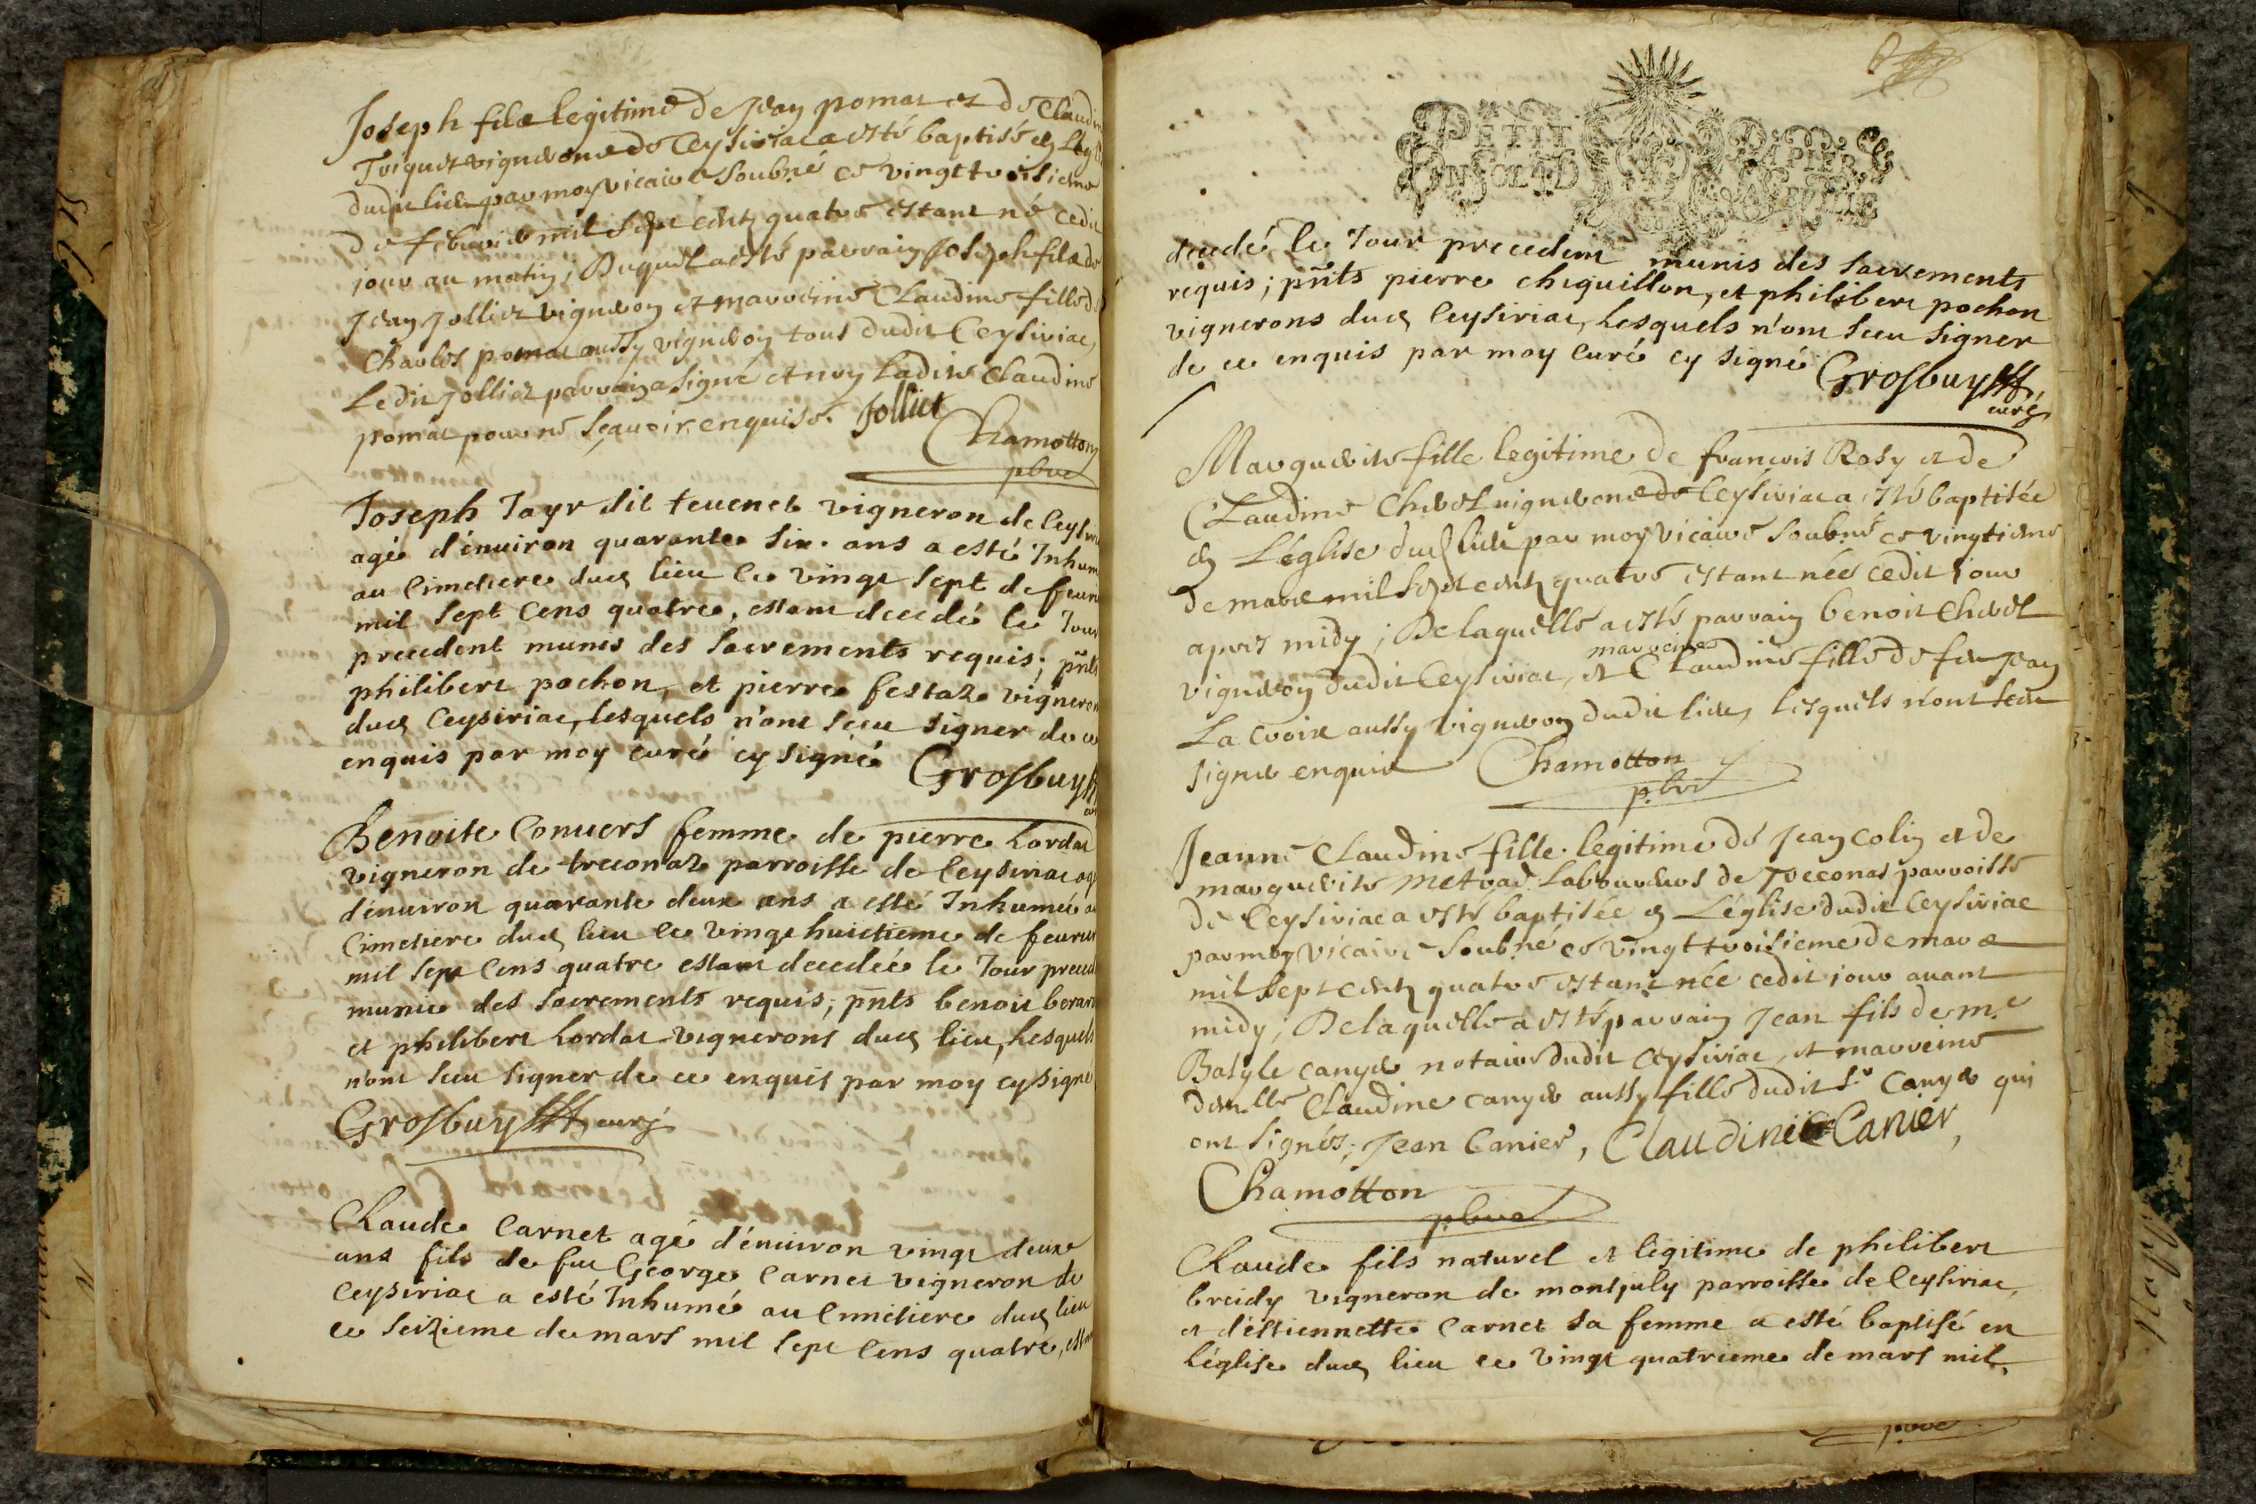 Joseph fils legitime de Jean pomat et de Claudine
Triquet vignerons de Ceysiriat a esté baptisé en Leglise
dudit lieu par moy vicaire soubné ce vingt troisieme
de febvrier mil sept cents quatre estant né cedit
jour au matin; Duquel a esté parrain Joseph fils de
Jean Jolliet vigneron et marreine Claudine fille de
Charles pomat aussy vigneron tous dudit Ceysiriac,
Ledit Jolliet parrain a signé et non Ladite Claudine
pomat pour ne sçauoir enquise. Jolliet
Chamotton
pbre
Joseph Tayr dit teuenet vigneron de Ceysiriac
agé d'enuiron quarante six ans a esté Inhumé
au Cimetiere dud lieu le vingt sept de feurier
mil sept Cens quatre, estant decedé le Jour
precedent munis des sacrements requis; pnts
philibert pochon, et pierre festaz vignerons
dud Ceysiriac, lesquels n'ont sceu signer de ce
enquis par moy curé cy signé Grosbuy
Benoite Conuers femme de pierre Lordat
vigneron de treconaz parroisse de Ceysiriac agée
d'enuiron quarante deux ans a esté Inhumée au
Cimetiere dud lieu le vingt huictieme de feurier
mil sept Cens quatre estant decedée le Jour precedent
munie des sacrements requis; pnts benoit berard
et philibert Lordat vignerons dud lieu, Lesquels
n'ont sceu signer de ce enquis par moy cy signé
Grosbuy curé
Claude Carnet agé d'enuiron vingt deux
ans fils de feu George Carnet vigneron de
Ceysiriac a esté Inhumé au Cimetiere dud lieu
le seizieme de mars mil sept Cens quatre, estant
PETIT PAPIER
decedé le Jour precedent munis des sacrements
requis; pnts pierre chiquillon, et philibert pochon
vignerons dud Ceysiriac, Lesquels n'ont sceu signer
de ce enquis par moy Curé cy signé Grosbuy
curé
Marguerite fille legitime de francois Rosy et de
Claudine Chevel vignerons de Ceysiriac a esté baptisée
en Léglise dud lieu par moy vicaire soubné ce vingtieme
de mars mil sept cents quatre estant née cedit jour
apres midy; De laquelle a esté parrain benoit Chevel
vigneron dudit Ceysiriac, et marreine Claudine fille de feu Jean
La croix aussy vigneron dudit lieu, lesquels n'ont sceu
signer enquis Chamotton
pbre
Jeanne Claudine fille legitime de Jean Colin et de
marguerite metrad Laboureurs de Treconas parroisse
de Ceysiriac a esté baptisée en Léglise dudit Ceysiriac
par moy vicaire soubné ce vingt troisieme de mars
mil sept cents quatre estant née cedit jour auant
midy; De laquelle a esté parrain Jean fils de m.e
Basyle canyer notaire dudit Ceysiriac, et marreine
dem.lle Claudine canyer aussy fille dudit s.r Canyer qui
ont signés; Jean Canier, Claudine Canier,
Chamotton
pbre
Claude fils naturel et legitime de philibert
breidy vigneron de montjuly parroisse de Ceysiriac,
et d'estiennette Carnet sa femme a esté baptisé en
L'église dud lieu ce vingt quatrieme de mars mil
pbre